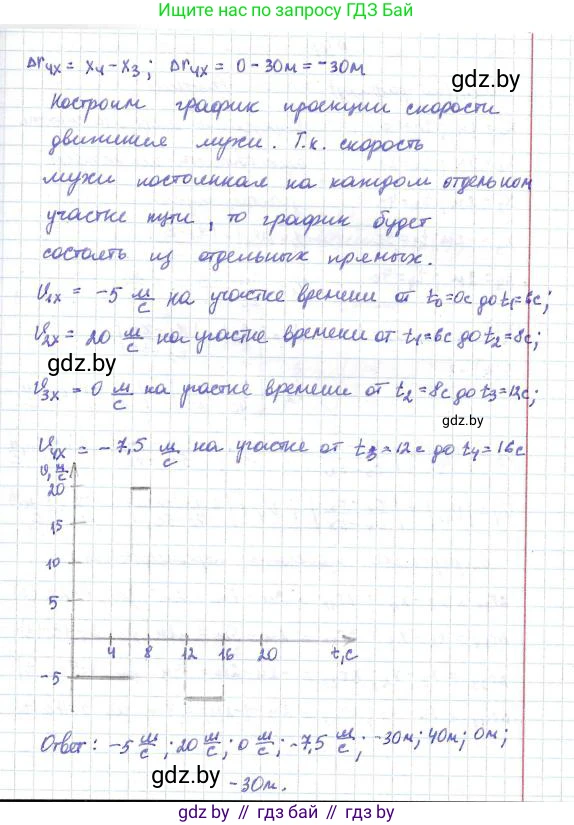 Ищите нас по запросу ГДЗ Бай
Δr₄ₓ = x₄ - x₃; Δr₄ₓ = 0 - 30м = -30м
Построим график проекции скорости
движения мухи. Т.к. скорость
мухи постоянная на каждом отдельном
участке пути, то график будет
состоять из отдельных прямых.
υ₁ₓ = -5 м/с на участке времени от t₀=0с до t₁=6с;
υ₂ₓ = 20 м/с на участке времени от t₁=6с до t₂=8с;
gdz.by
υ₃ₓ = 0 м/с на участке времени от t₂=8с до t₃=12с;
gdz.by
υ₄ₓ = -7,5 м/с на участке от t₃=12с до t₄=16с
υ, м/с
20
15
10
5
4 8 12 16 20 t,с
-5
Ответ: -5 м/с; 20 м/с; 0 м/с; -7,5 м/с; -30м; 40м; 0м;
gdz.by -30м.
gdz.by // гдз бай // gdz.by // гдз бай // gdz.by